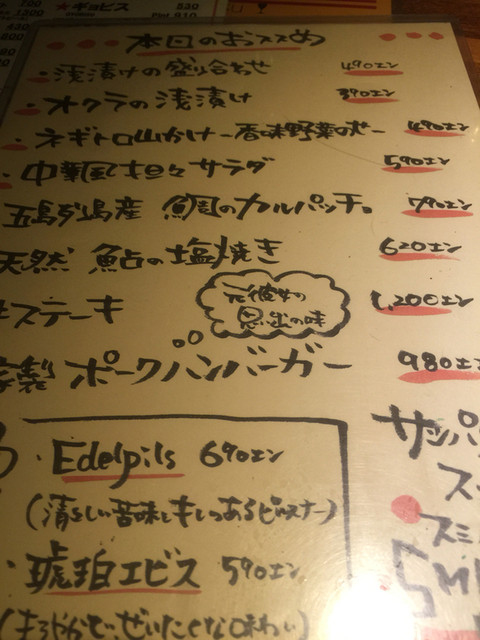 ★ギョビス
本日のおススメ
・浅漬けの盛り合わせ 490エン
・オクラの浅漬け 390エン
・ネギトロ山かけー香味野菜のせー 490エン
・中華風坦々サラダ 590エン
五島列島産 鯛のカルパッチョ 790エン
天然 鮎の塩焼き 620エン
ステーキ 1,200エン
元彼女の
思い出の味
製 ポークハンバーガー 980エン
・Edelpils 690エン
(清々しい苦味しキレのあるピルスナー)
・琥珀エビス 590エン
(まろやかで、ぜいたくな味わい)
サッパ